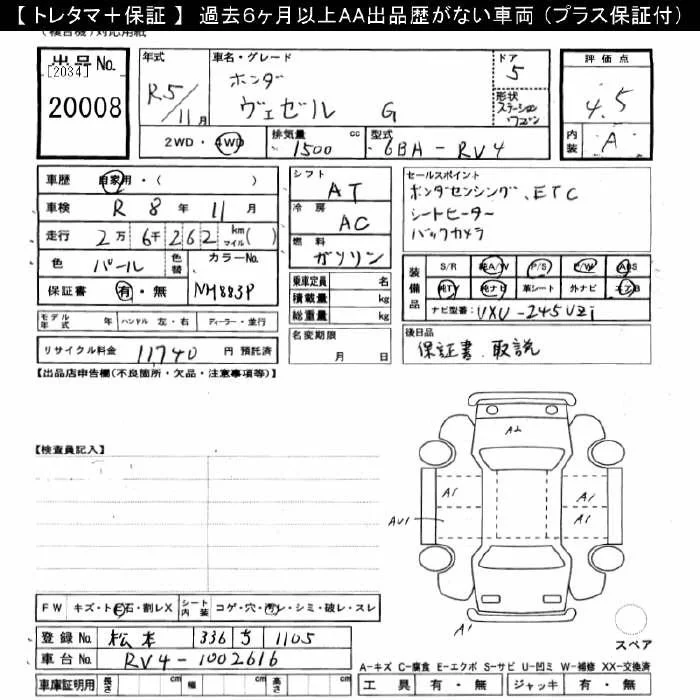 【 トレタマ＋保証 】 過去6ヶ月以上AA出品歴がない車両（プラス保証付）
(複合機)対応用紙
出品No.
[2034]
20008
年式
R5/11月
車名・グレード
ホンダ
ヴェゼル G
ドア
5
形状
ステーションワゴン
評価点
4.5
内装 A
2WD・4WD
排気量 1500 cc
型式 6BA-RV4
車歴 自家用・( )
車検 R 8年 11月
走行 2万 6千 262 km マイル( )
色 パール 色替 カラーNo.
保証書 有・無 NH883P
シフト AT
冷房 AC
燃料 ガソリン
乗車定員 名
積載量 kg
総重量 kg
セールスポイント
ホンダセンシング、ETC
シートヒーター
バックカメラ
装備品
S/R 純A/W P/S P/W ABS
純TV 純ナビ 革シート 外ナビ エアB
ナビ型番: VXU-245VZi
モデル年式 年 ハンドル 左・右 ディーラー・並行
名変期限
月 日
後日品
保証書、取説
リサイクル料金 11740 円 預託済
【出品店申告欄(不良箇所・欠品・注意事項等)】
【検査員記入】
A2
A1
A1
AU1
A1
A1
FW キズ・トビ石・割レX シート内装 コゲ・穴・汚レ・シミ・破レ・スレ
スペア
登録No. 松本 336 ち 1105
車台No. RV4-1002616
A-キズ C-腐食 E-エクボ S-サビ U-凹ミ W-補修 XX-交換済
車庫証明用 長さ cm 幅 cm 高さ cm
工具 有・無 ジャッキ 有・無